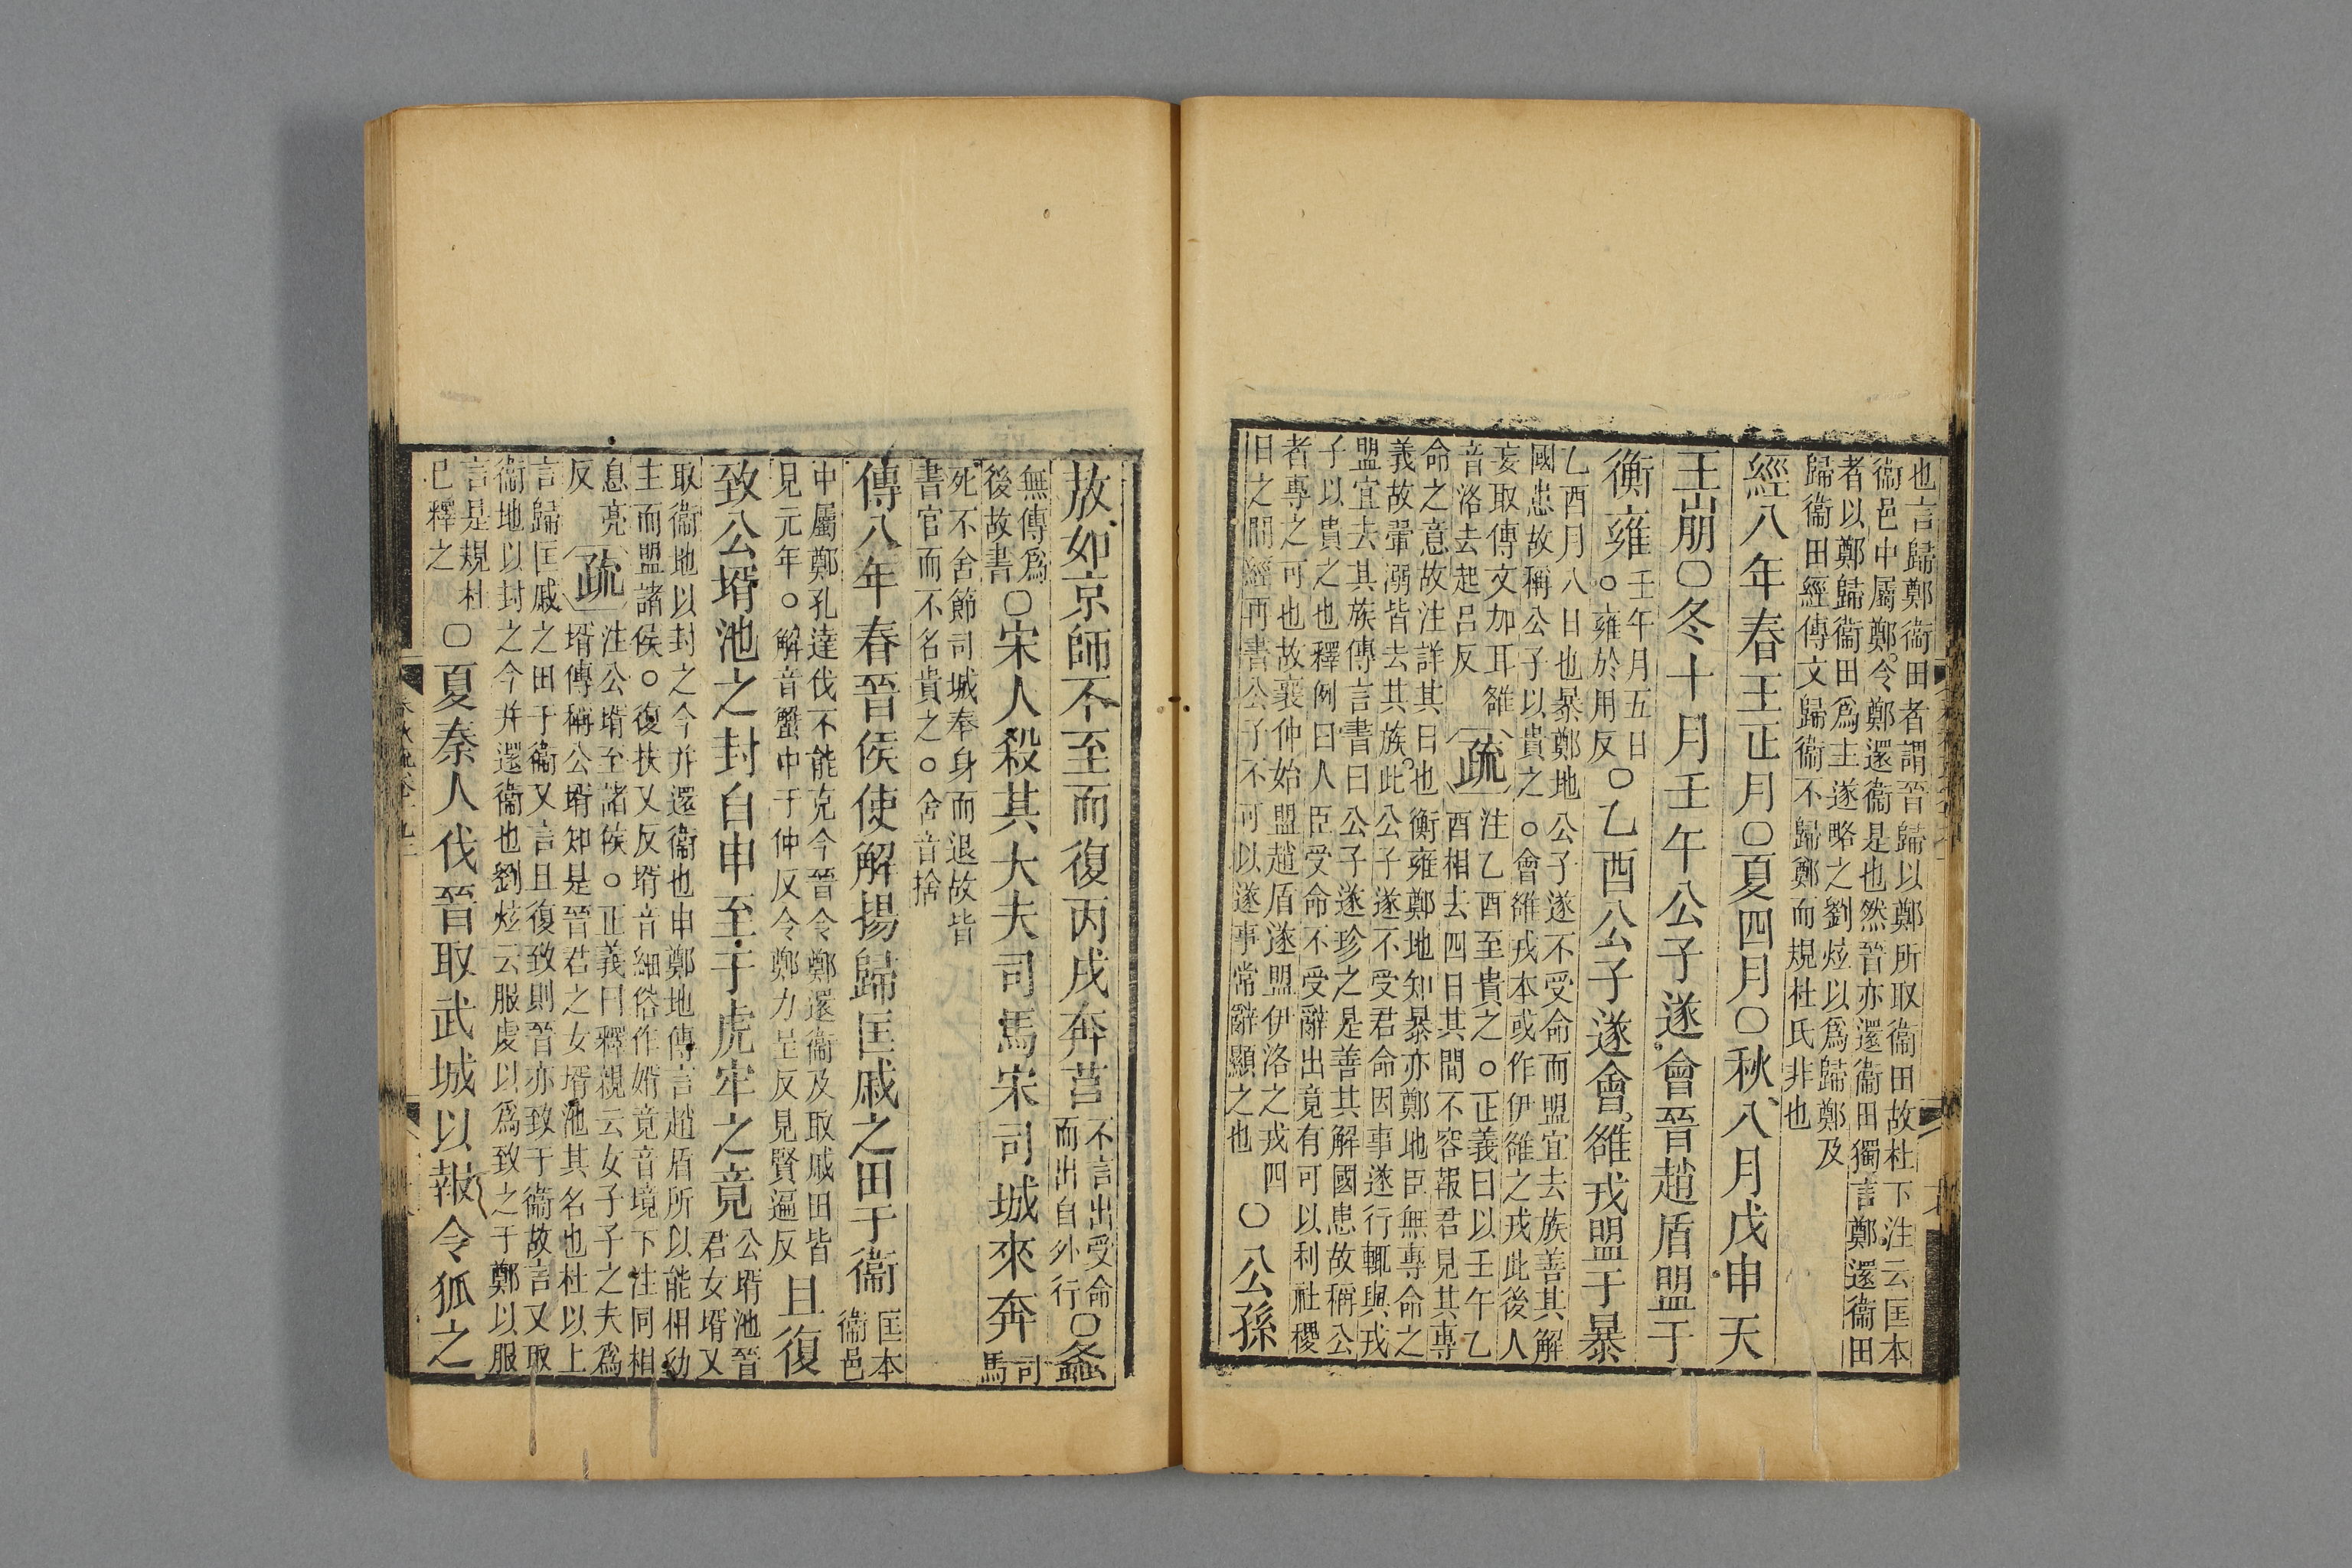 也言歸鄭衞田者謂晉歸以鄭所取衞田故杜下注云匡本
衞邑中屬鄭令鄭還衞是也然晉亦還衞田獨言鄭還衞田
者以鄭歸衞田爲主遂略之劉炫以爲歸鄭及
歸衞田經傳文歸衞不歸鄭而規杜氏非也
經八年春王正月〇夏四月〇秋八月戊申天
王崩〇冬十月壬午公子遂會晉趙盾盟于
衡雍
壬午月五日
○雍於用反
〇乙酉公子遂會雒戎盟于暴
乙酉月八日也暴鄭地公子遂不受命而盟宜去族善其解
國患故稱公子以貴之○會雒戎本或作伊雒之戎此後人
妄取傳文加耳雒
音洛去起呂反
疏
注乙酉至貴之○正義曰以壬午乙
酉相去四日其間不容報君見其專
命之意故注詳其日也衡雍鄭地知暴亦鄭地臣無專命之
義故翬溺皆去其族此公子遂不受君命因事遂行輒與戎
盟宜去其族傳言書曰公子遂珍之是善其解國患故稱公
子以貴之也釋例曰人臣受命不受辭出竟有可以利社稷
者專之可也故襄仲始盟趙盾遂盟伊洛之戎四
日之間經再書公子不可以遂事常辭顯之也
〇公孫
敖如京師不至而復丙戌奔莒
不言出受命
而出自外行
〇螽
無傳爲
後故書
〇宋人殺其大夫司馬宋司城來奔
司
馬
死不舍節司城奉身而退故皆
書官而不名貴之○舍音捨
傳八年春晉侯使解揚歸匡戚之田于衞
匡本
衞邑
中屬鄭孔達伐不能克今晉令鄭還衞及取戚田皆
見元年○解音蟹中丁仲反令鄭力呈反見賢遍反
且復
致公壻池之封自申至于虎牢之竟
公壻池晉
君女壻又
取衞地以封之今并還衞也申鄭地傳言趙盾所以能相幼
主而盟諸侯○復扶又反壻音細俗作婿竟音境下注同相
息亮
反
疏
注公壻至諸侯○正義曰釋親云女子子之夫爲
壻傳稱公壻知是晉君之女壻池其名也杜以上
言歸匡戚之田于衞又言且復致則晉亦致于衞故言又取
衞地以封之今并還衞也劉炫云服虔以爲致之于鄭以服
言是規杜
已釋之
〇夏秦人伐晉取武城以報令狐之